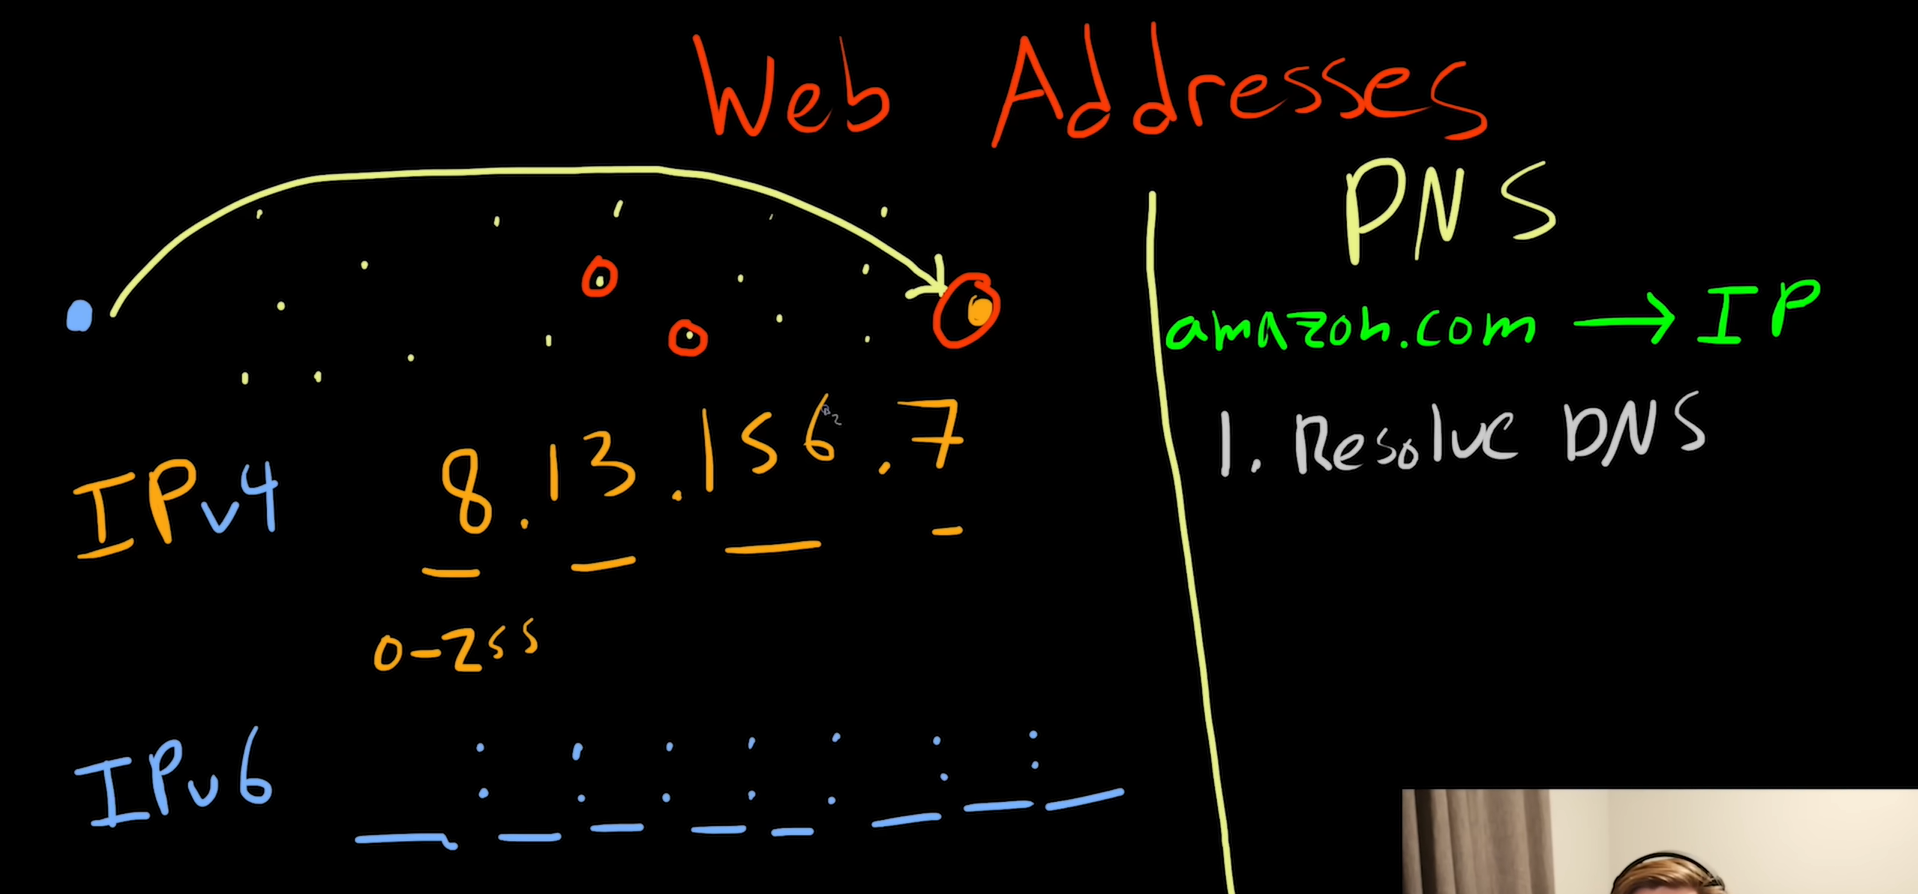 Web Addresses
IPv4 8.13.156.7
0-255
IPv6 : : : : : : :
DNS
amazon.com → IP
1. Resolve DNS